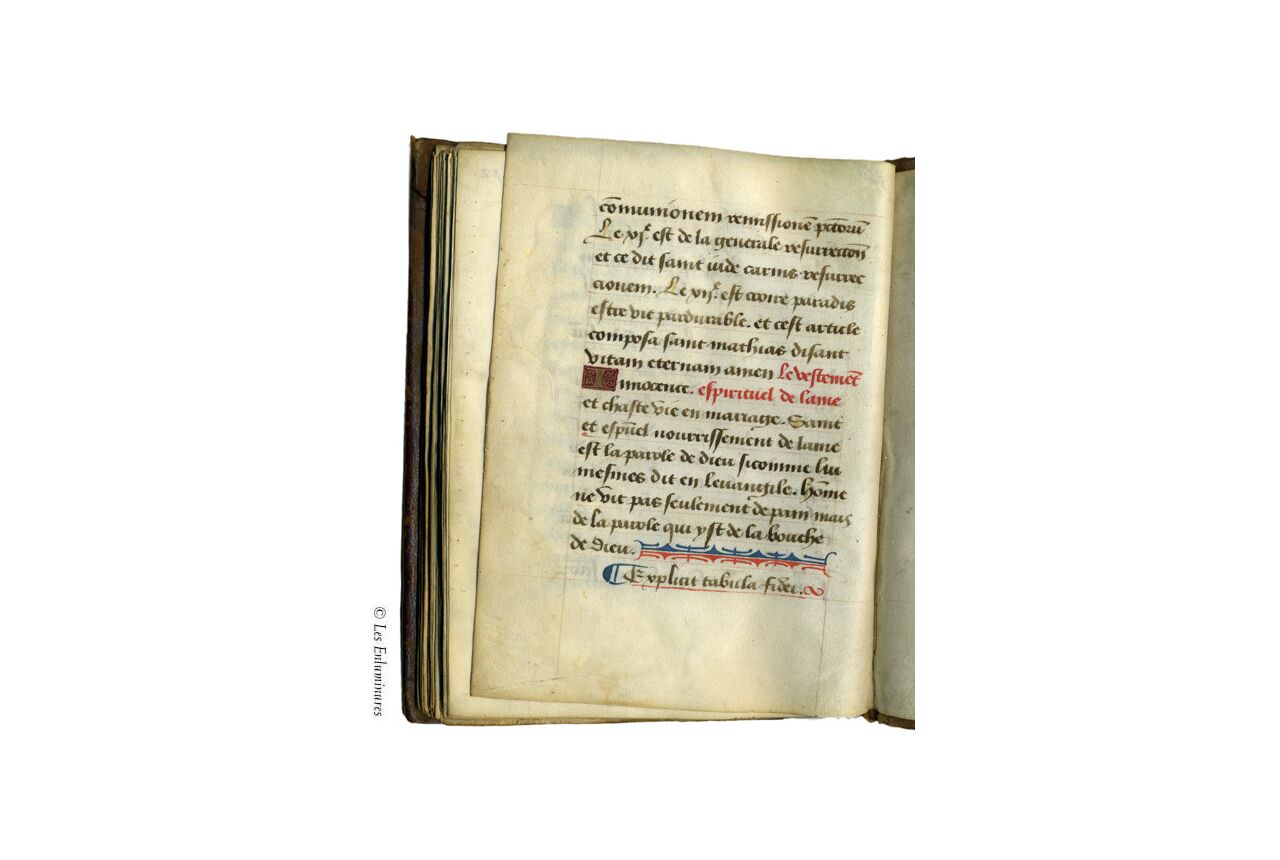 cōmunionem remissionē pctorū
Le xi.e est de la generale resurrectōn
et ce dit saint iude carnis resurrec
cionem. Le xii.e est croire paradis
estre vie pardurable. et cest article
composa saint mathias disant
vitam eternam amen le vestemēt
Innocence. espirituel de lame
et chaste vie en mariage. Saint
et espūel nourrissement de lame
est la parole de dieu sicomme lui
mesmes dit en leuangile. hōme
ne vit pas seulement de pain mais
de la parole qui yst de la bouche
de dieu.
Explicit tabula fidei.
© Les Enluminures